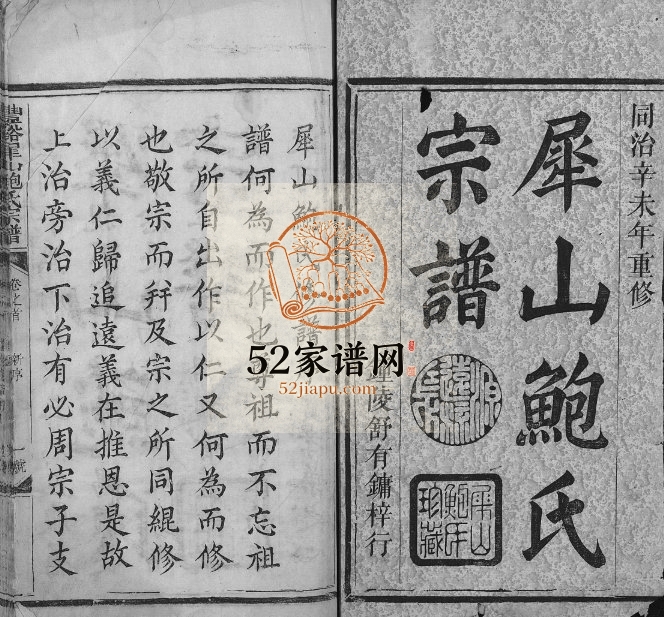 同治辛未年重修
犀山鮑氏
宗譜
陵舒有鏞梓行
源遠流長
犀山鮑氏珍藏
犀山鮑氏
譜何為而作也尊祖而不忘祖
之所自出作以仁又何為而修
也敬宗而并及宗之所同緄修
以義仁歸追遠義在推恩是故
上治旁治下治有必周宗子支
犀山鮑氏宗譜
卷之首
新序
一號
52家谱网
52jiapu.com